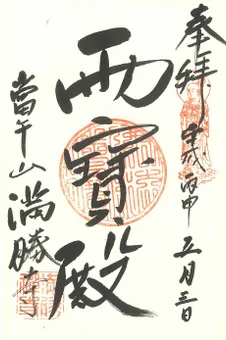 奉拜
平成丙申 五月三日
雨寶殿
當午山 満勝寺